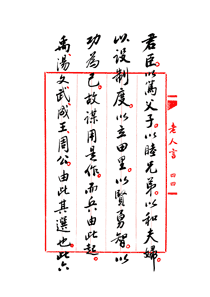 君臣。以篤父子。以睦兄弟。以和夫婦。
以設制度。以立田里。以賢勇智。以
功為己。故謀用是作。而兵由此起。
禹湯文武成王周公。由此其選也。此六
老人言 四四